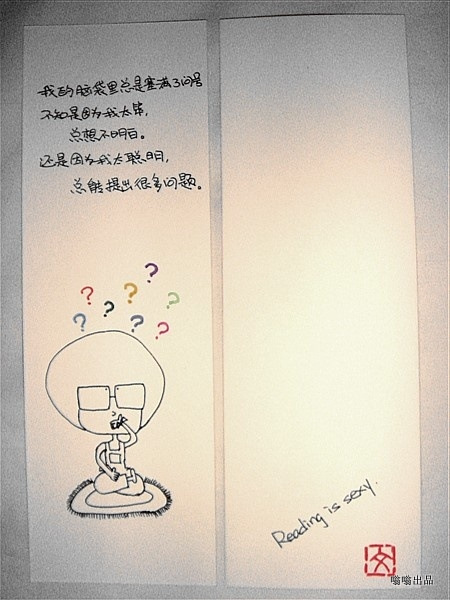 我的脑袋里总是塞满了问号
不知是因为我太笨,
总想不明白。
还是因为我太聪明,
总能提出很多问题。
? ? ? ? ? ? ? ?
Reading is sexy.
文
嗡嗡出品